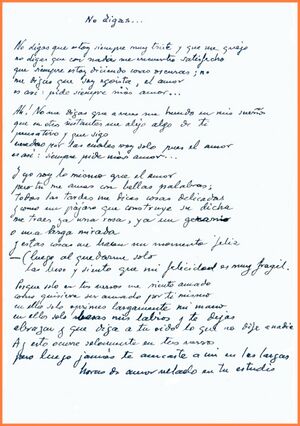 No digas...
No digas que estoy siempre muy triste y que me quejo
no digas que con nada me encuentro satisfecho
que siempre estoy diciendo cosas oscuras; no
me digas que soy egoista, el amor
es asi: pide siempre más amor...
Ah! No me digas que a veces me hundo en mis sueños
que en otros instantes me alejo algo de ti
pensativo y que sigo
por las cuales voy solo pues el amor
es asi: siempre pide más amor...
Y yo soy lo mismo que el amor
pues tú me amas con bellas palabras;
todas las tardes me dices cosas delicadas
y como un pájaro que construye su dicha
me traes ya una rosa, ya un geranio
o una larga mirada
y estas cosas me hacen un momento feliz
— (luego al quedarme solo
las beso y siento que mi felicidad es muy fragil.
Porque solo en tus versos me siento amado
cómo quisiera ser amado por ti mismo
en ellos solo oprimes largamente mi mano
en ellos solo besas mis labios y te dejas
abrazar y que diga a tu oido lo que no dije a nadie
Asi esto ocurre solamente en tus versos
pero luego jamás te acercaste a mi en las largas
horas de amor velado en tu estudio